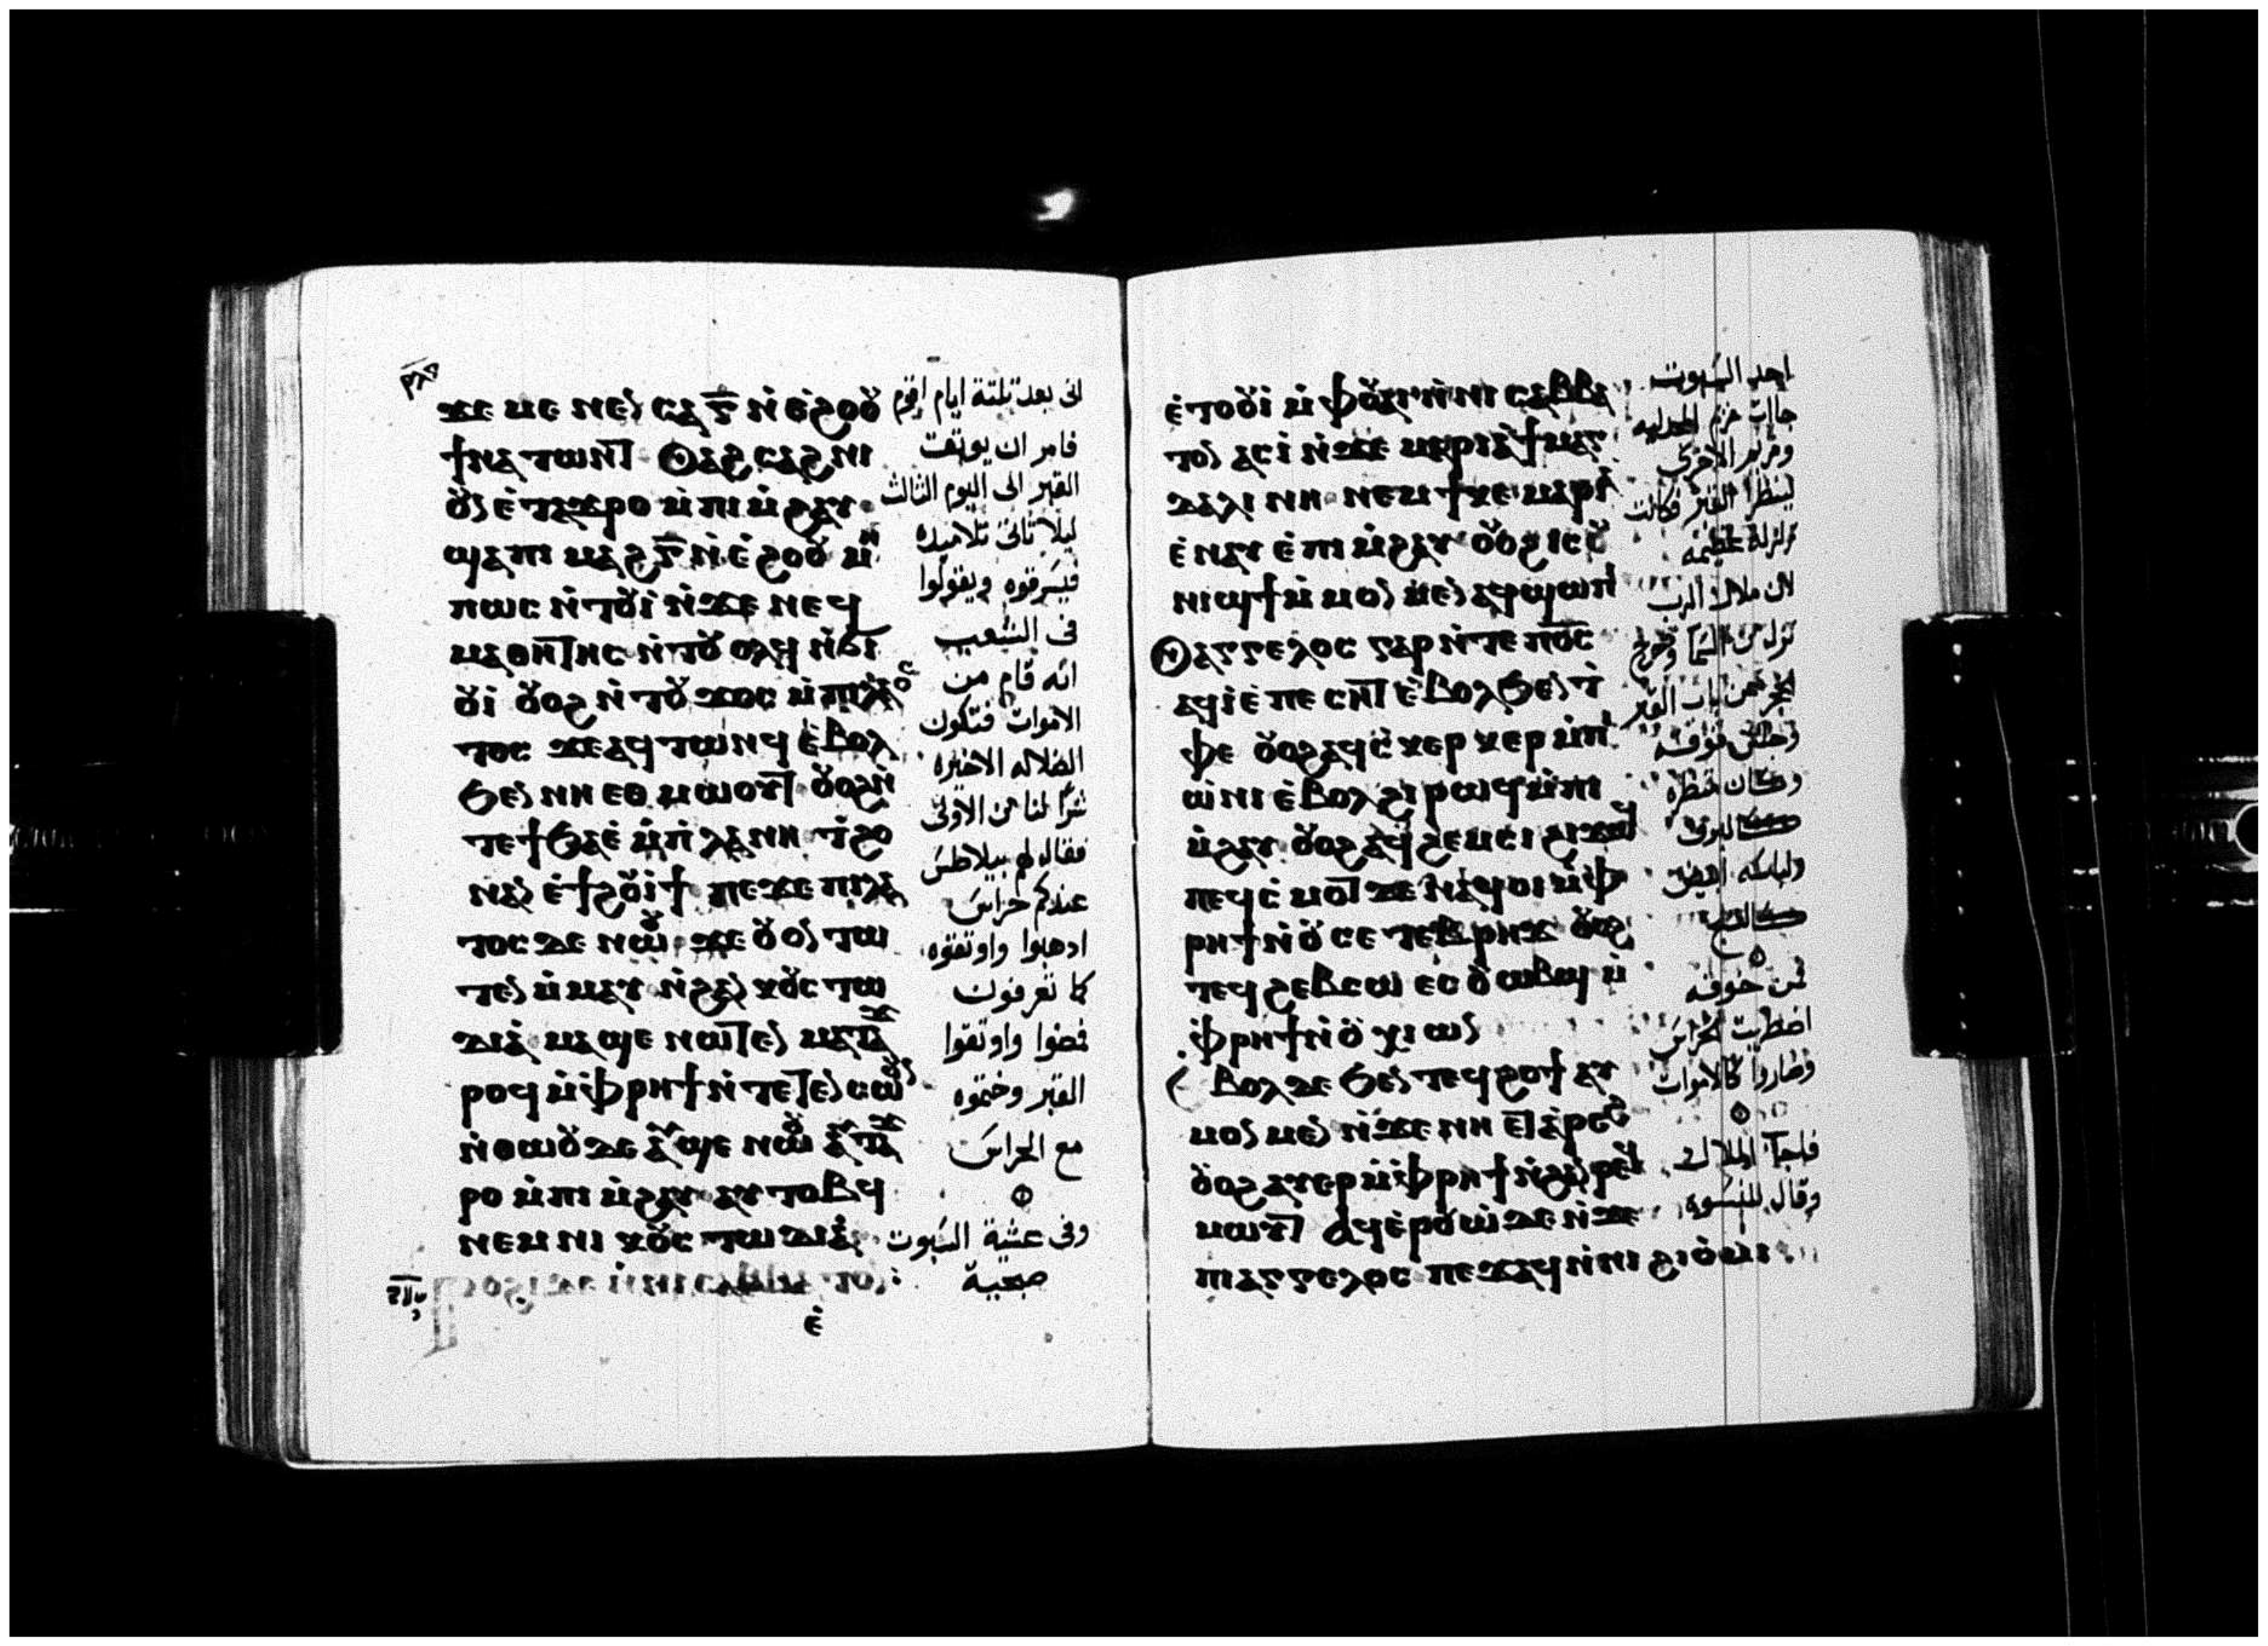 ⲣⲗⲇ
ϫⲉ ⲙⲉ ⲛⲉⲛ ⲥⲁ ⲅ̅ ⲛ̀ ⲉ̀ϩⲟⲟⲩ
ϯⲛⲁ ⲧⲱⲛⲧ ⲟⲩⲁϩ ⲥⲁϩⲛⲓ
ⲟⲩⲛ ⲉ̀ ⲧⲁϫⲣⲟ ⲙ̀ ⲡⲓ ⲙ̀ϩⲁⲩ
ϣⲁ ⲡⲓ ⲙⲁϩ ⲅ̅ ⲛ̀ ⲉ̀ϩⲟⲟⲩ ⲙⲏ
ⲡⲱⲥ ⲛ̀ⲧⲟⲩⲓ̀ ⲛ̀ϫⲉ ⲛⲉϥ
ⲙⲁⲑⲏⲧⲏⲥ ⲛ̀ⲧⲟⲩ ⲟⲗϥ ⲛ̀ϭⲓ
ⲟⲩⲓ̀ ⲟⲩⲟϩ ⲛ̀ⲧⲟⲩ ϫⲟⲥ ⲙ̀ⲡⲓⲗⲁⲟⲥ
ⲧⲟⲥ ϫⲉ ⲁϥ ⲧⲱⲛϥ ⲉ̀ⲃⲟⲗ
ϧⲉⲛ ⲛⲏ ⲉⲑ ⲙⲱⲟⲩⲧ ⲟⲩⲟϩ ⲛ̀
ⲧⲉ ϯϧⲁⲉ̀ ⲙ̀ⲡ̀ⲗⲁⲛⲏ ⲧ̀ϩⲟ
ⲛⲁⲛ ⲉ̀ϯϩⲟⲩⲓ̀ϯ ⲡⲉϫⲉ ⲡⲓⲗⲁ
ⲧⲟⲥ ⲇⲉ ⲛⲱⲟⲩ ϫⲉ ⲟⲩⲟⲛ ⲧⲱ
ⲧⲉⲛ ⲙ̀ⲙⲁⲩ ⲛ̀ϩⲁⲛ ⲕⲟⲩⲥⲧⲱ
ⲇⲓⲁ̀ ⲙⲁϣⲉ ⲛⲱⲧⲉⲛ ⲙⲁⲧⲁϫ
ⲣⲟϥ ⲙ̀ⲫ̀ⲣⲏϯ ⲛ̀ⲧⲉⲧⲉⲛ ⲥⲱⲟⲩⲛ
ⲛ̀ⲑⲱⲟⲩ ⲇⲉ ⲁⲩϣⲉ ⲛⲱⲟⲩ ⲁⲩⲧⲁϫ
ⲣⲟ ⲙ̀ⲡⲓ ⲙ̀ϩⲁⲩ ⲁⲩ ⲧⲟⲃϥ
ⲛⲉⲙ ⲛⲓ ⲕⲟⲩⲥⲧⲱⲇⲓⲁ̀
ⲉ̀
انى بعد تلتة ايام اقوم
فامر ان يوتقت
القبر الى اليوم الثالث
ليلا تاتى تلاميده
فيسرقوه ويقولوا
فى الشعب
انه قام من
الاموات فتكون
الضلاله الاخيره
شرًا لنا من الاولى
فقال لهم بيلاطس
عندكم حراس
ادهبوا واوتقوه
كما تعرفون
فمضوا واوتقوا
القبر وختموه
مع الحراس
وفى عشية السبوت
صبحية
ⲉ̀ⲧⲟⲟⲩⲓ̀ ⲙ̀ ⲫⲟⲩⲁⲓ ⲛ̀ⲛⲓ ⲥⲁⲃⲃⲁ
ⲧⲟⲛ ⲁⲥⲓ̀ ⲛ̀ϫⲉ ⲙⲁⲣⲓⲁ̀ ϯⲙⲁⲅ
ⲇⲁⲗⲓⲛⲏ ⲛⲉⲙ ϯⲕⲉ ⲙⲁⲣⲓⲁ̀
ⲉ̀ ⲛⲁⲩ ⲉ̀ ⲡⲓ ⲙ̀ϩⲁⲩ ⲟⲩⲟϩ ⲓⲥ ⲟⲩ
ⲛⲓϣϯ ⲙ̀ ⲙⲟⲛ ⲙⲉⲛ ⲁϥϣⲱⲡⲓ
ⲟⲩⲁⲅⲅⲉⲗⲟⲥ ⲅⲁⲣ ⲛ̀ⲧⲉ ⲡⲟ̅ⲥ̅
ⲁϥⲓ̀ ⲉ̀ ⲡⲉ ⲥⲏⲧ ⲉ̀ⲃⲟⲗ ϧⲉⲛ ⲧ̀
ⲫⲉ ⲟⲩⲟϩ ⲁϥⲥ̀ⲕⲉⲣ ⲕⲉⲣ ⲙ̀ⲡ
ⲱ̀ⲛⲓ ⲉ̀ⲃⲟⲗ ϩⲓ ⲣⲱϥ ⲙ̀ⲡⲓ
ⲙ̀ϩⲁⲩ ⲟⲩⲟϩ ⲁϥ ϩⲉⲙⲥⲓ ϩⲓϫⲱϥ
ⲡⲉϥⲥ̀ⲙⲟⲧ ⲇⲉ ⲛⲁϥⲟⲓ ⲙ̀ⲫ
ⲣⲏϯ ⲛ̀ⲟⲩ ⲥⲉⲧⲉⲃⲣⲏϫ ⲟⲩⲟϩ
ⲧⲉϥ ϩⲉⲃⲥⲱ ⲉⲥ ⲟⲩⲱⲃϣ ⲙ̀
ⲫ̀ⲣⲏϯ ⲛ̀ⲟⲩ ⲭⲓⲱⲛ
ⲉ̀ⲃⲟⲗ ⲇⲉ ϧⲉⲛ ⲧⲉϥϩⲟϯ ⲁⲩ
ⲙⲟⲛ ⲙⲉⲛ ⲛ̀ϫⲉ ⲛⲏ ⲉⲧ ⲁ̀ⲣⲉϩ
ⲟⲩⲟϩ ⲁⲩⲉⲣ ⲙ̀ⲫ̀ⲣⲏϯ ⲛ̀ϩⲁⲛ ⲣⲉϥ
ⲙⲱⲟⲩⲧ ⲁϥⲉ̀ⲣⲟⲩⲱ̀ ⲇⲉ ⲛ̀ϫⲉ
ⲡⲓⲁⲅⲅⲉⲗⲟⲥ ⲡⲉϫⲁϥ ⲛ̀ⲛⲓ ϩⲓⲟ̀ⲙⲓ
احد السبوت
جاات مريم المجدليه
ومريم الاخرى
لينظرا القبر فكانت
زلزلة عظيمه
لان ملاك الرب
نزل من السما ودحرج
الحجر من باب القبر
وجلس فوقه
وكان منظره
كالبرق
ولباسه ابيض
كالثلج
فمن خوفه
اضطربت الحراس
وصاروا كالاموات
فاجاب الملاك
وقال للنسوه